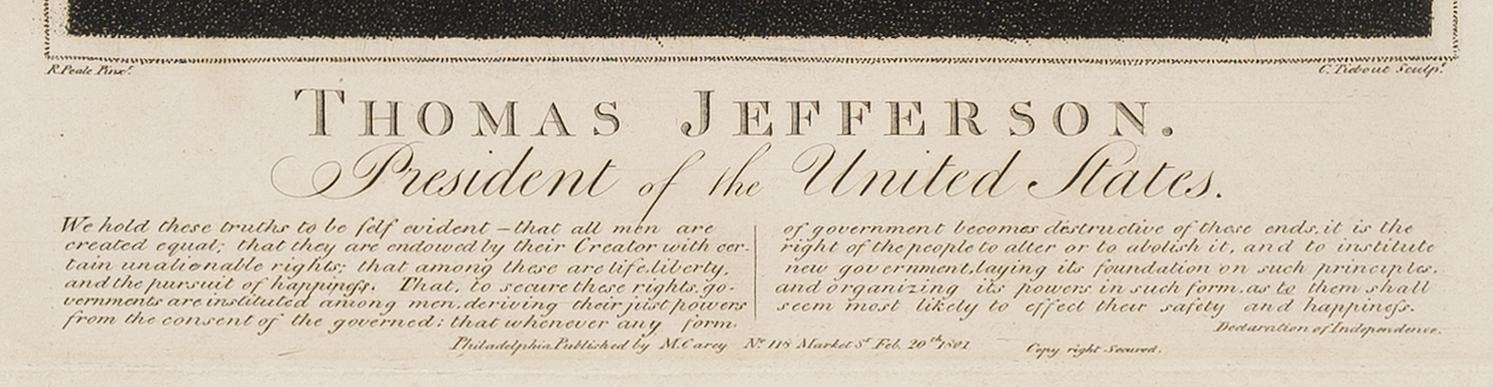 R. Peale Pinxt.
C. Tiebout Sculpt.
THOMAS JEFFERSON.
President of the United States.
We hold these truths to be ſelf evident – that all men are
created equal; that they are endowed by their Creator with cer-
tain unalienable rights; that among these are life, liberty,
and the pursuit of happineſs. That, to secure these rights, go-
vernments are instituted among men, deriving their just powers
from the consent of the governed; that whenever any form
of government becomes destructive of these ends, it is the
right of the people to alter or to abolish it, and to institute
new government, laying its foundation on such principles,
and organizing its powers in such form, as to them shall
seem most likely to effect their safety and happineſs.
Declaration of Independence.
Philadelphia. Published by M. Carey No. 118 Market St. Feb. 20th 1801
Copy right Secured.